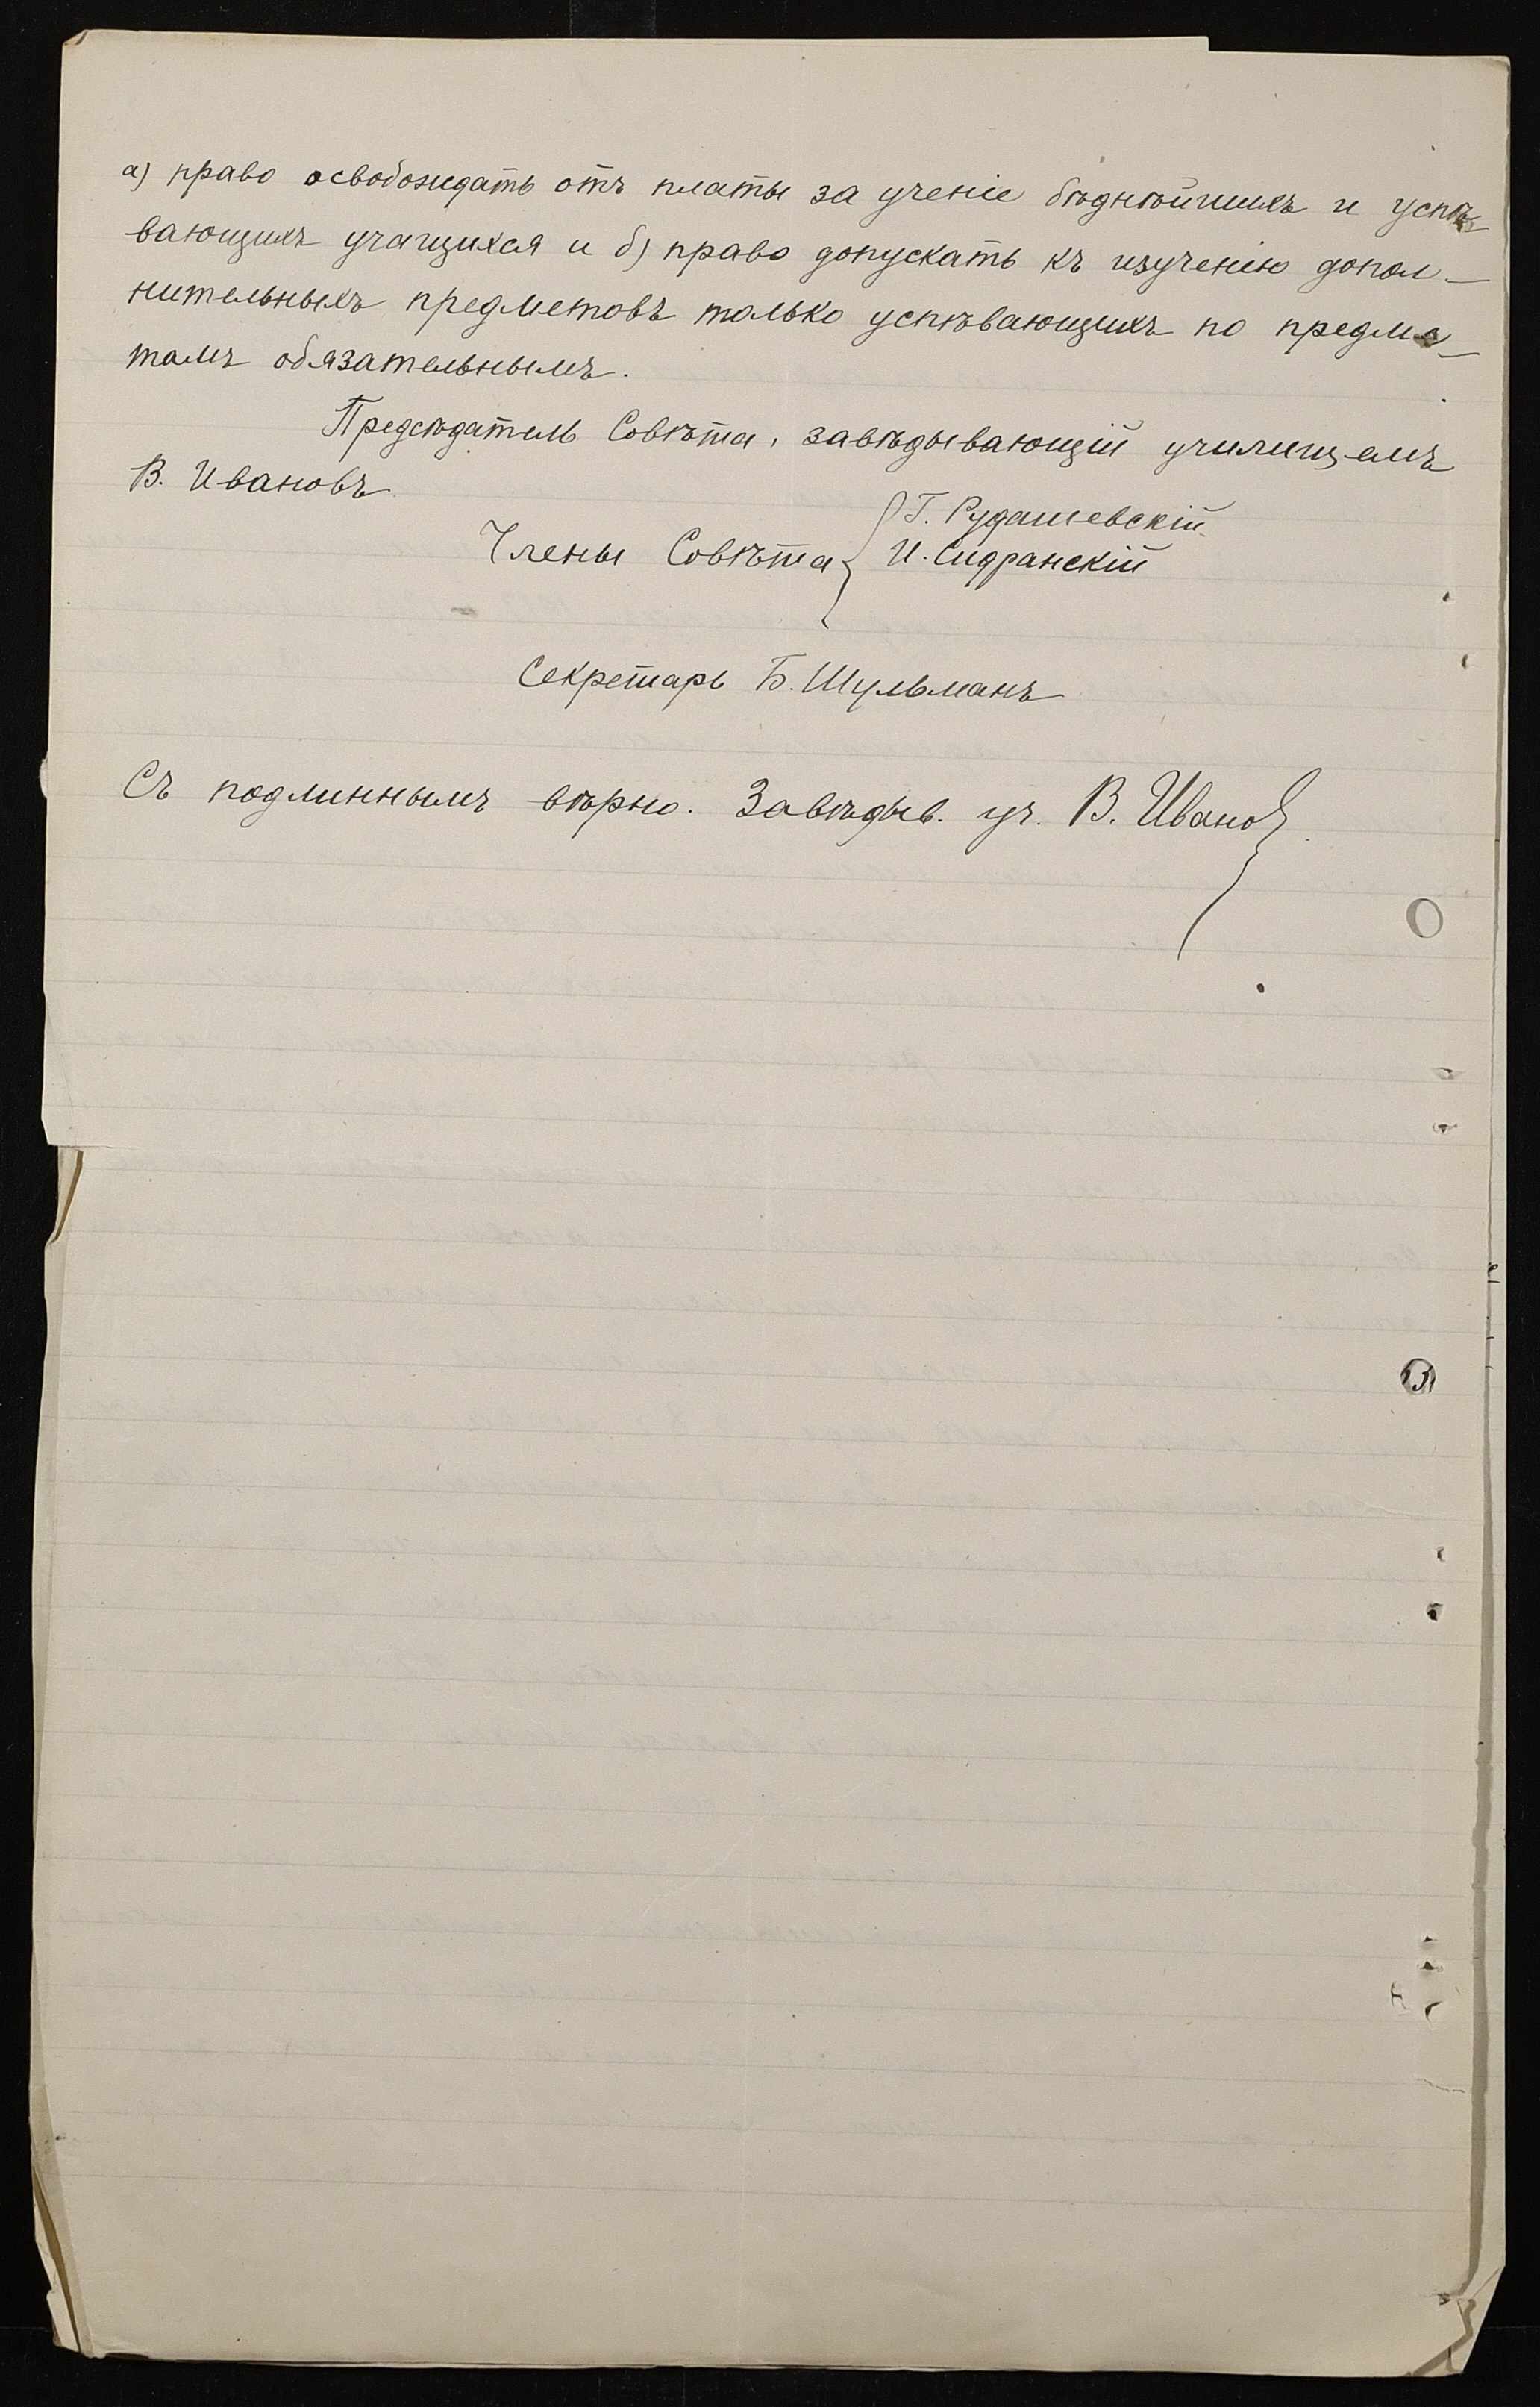 а) право освобождать отъ платы за ученіе бѣднѣйшихъ и успѣ-
вающихъ учащихся и б) право допускать къ изученію допол-
нительныхъ предметовъ только успѣвающихъ по предме-
тамъ обязательнымъ.
Предсѣдатель Совѣта, завѣдывающій училищемъ
В. Ивановъ
Члены Совѣта { Г. Рудашевскій
И. Сидранскій
Секретарь Б. Шульманъ
Съ подлиннымъ вѣрно. Завѣдыв. уч. В. Иванов